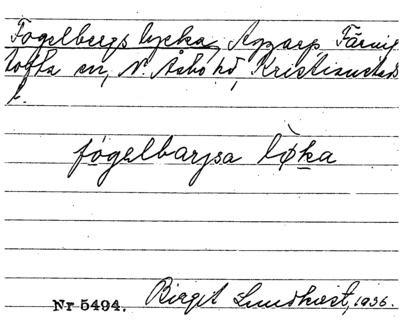 Fogelbergs lycka, Aggarp, Färing
tofta sn, N. Åsbo hd, Kristianstads
l.
fogelbarjsa løka
Nr 5494. Birgit Lundkvist, 1936.